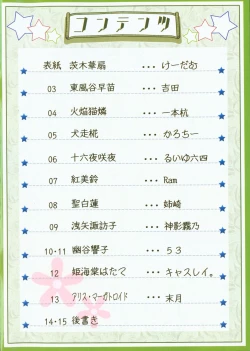 コンテンツ
表紙 茨木華扇 ・・・ けーだむ
03 東風谷早苗 ・・・ 吉田
04 火焔猫燐 ・・・ 一本杭
05 犬走椛 ・・・ かろちー
06 十六夜咲夜 ・・・ るいゆ六四
07 紅美鈴 ・・・ Ram
08 聖白蓮 ・・・ 姉崎
09 洩矢諏訪子 ・・・ 神影霧乃
10・11 幽谷響子 ・・・ 53
12 姫海棠はたて ・・・ キャスレイ。
13 アリス・マーガトロイド ・・・ 末月
14・15 後書き